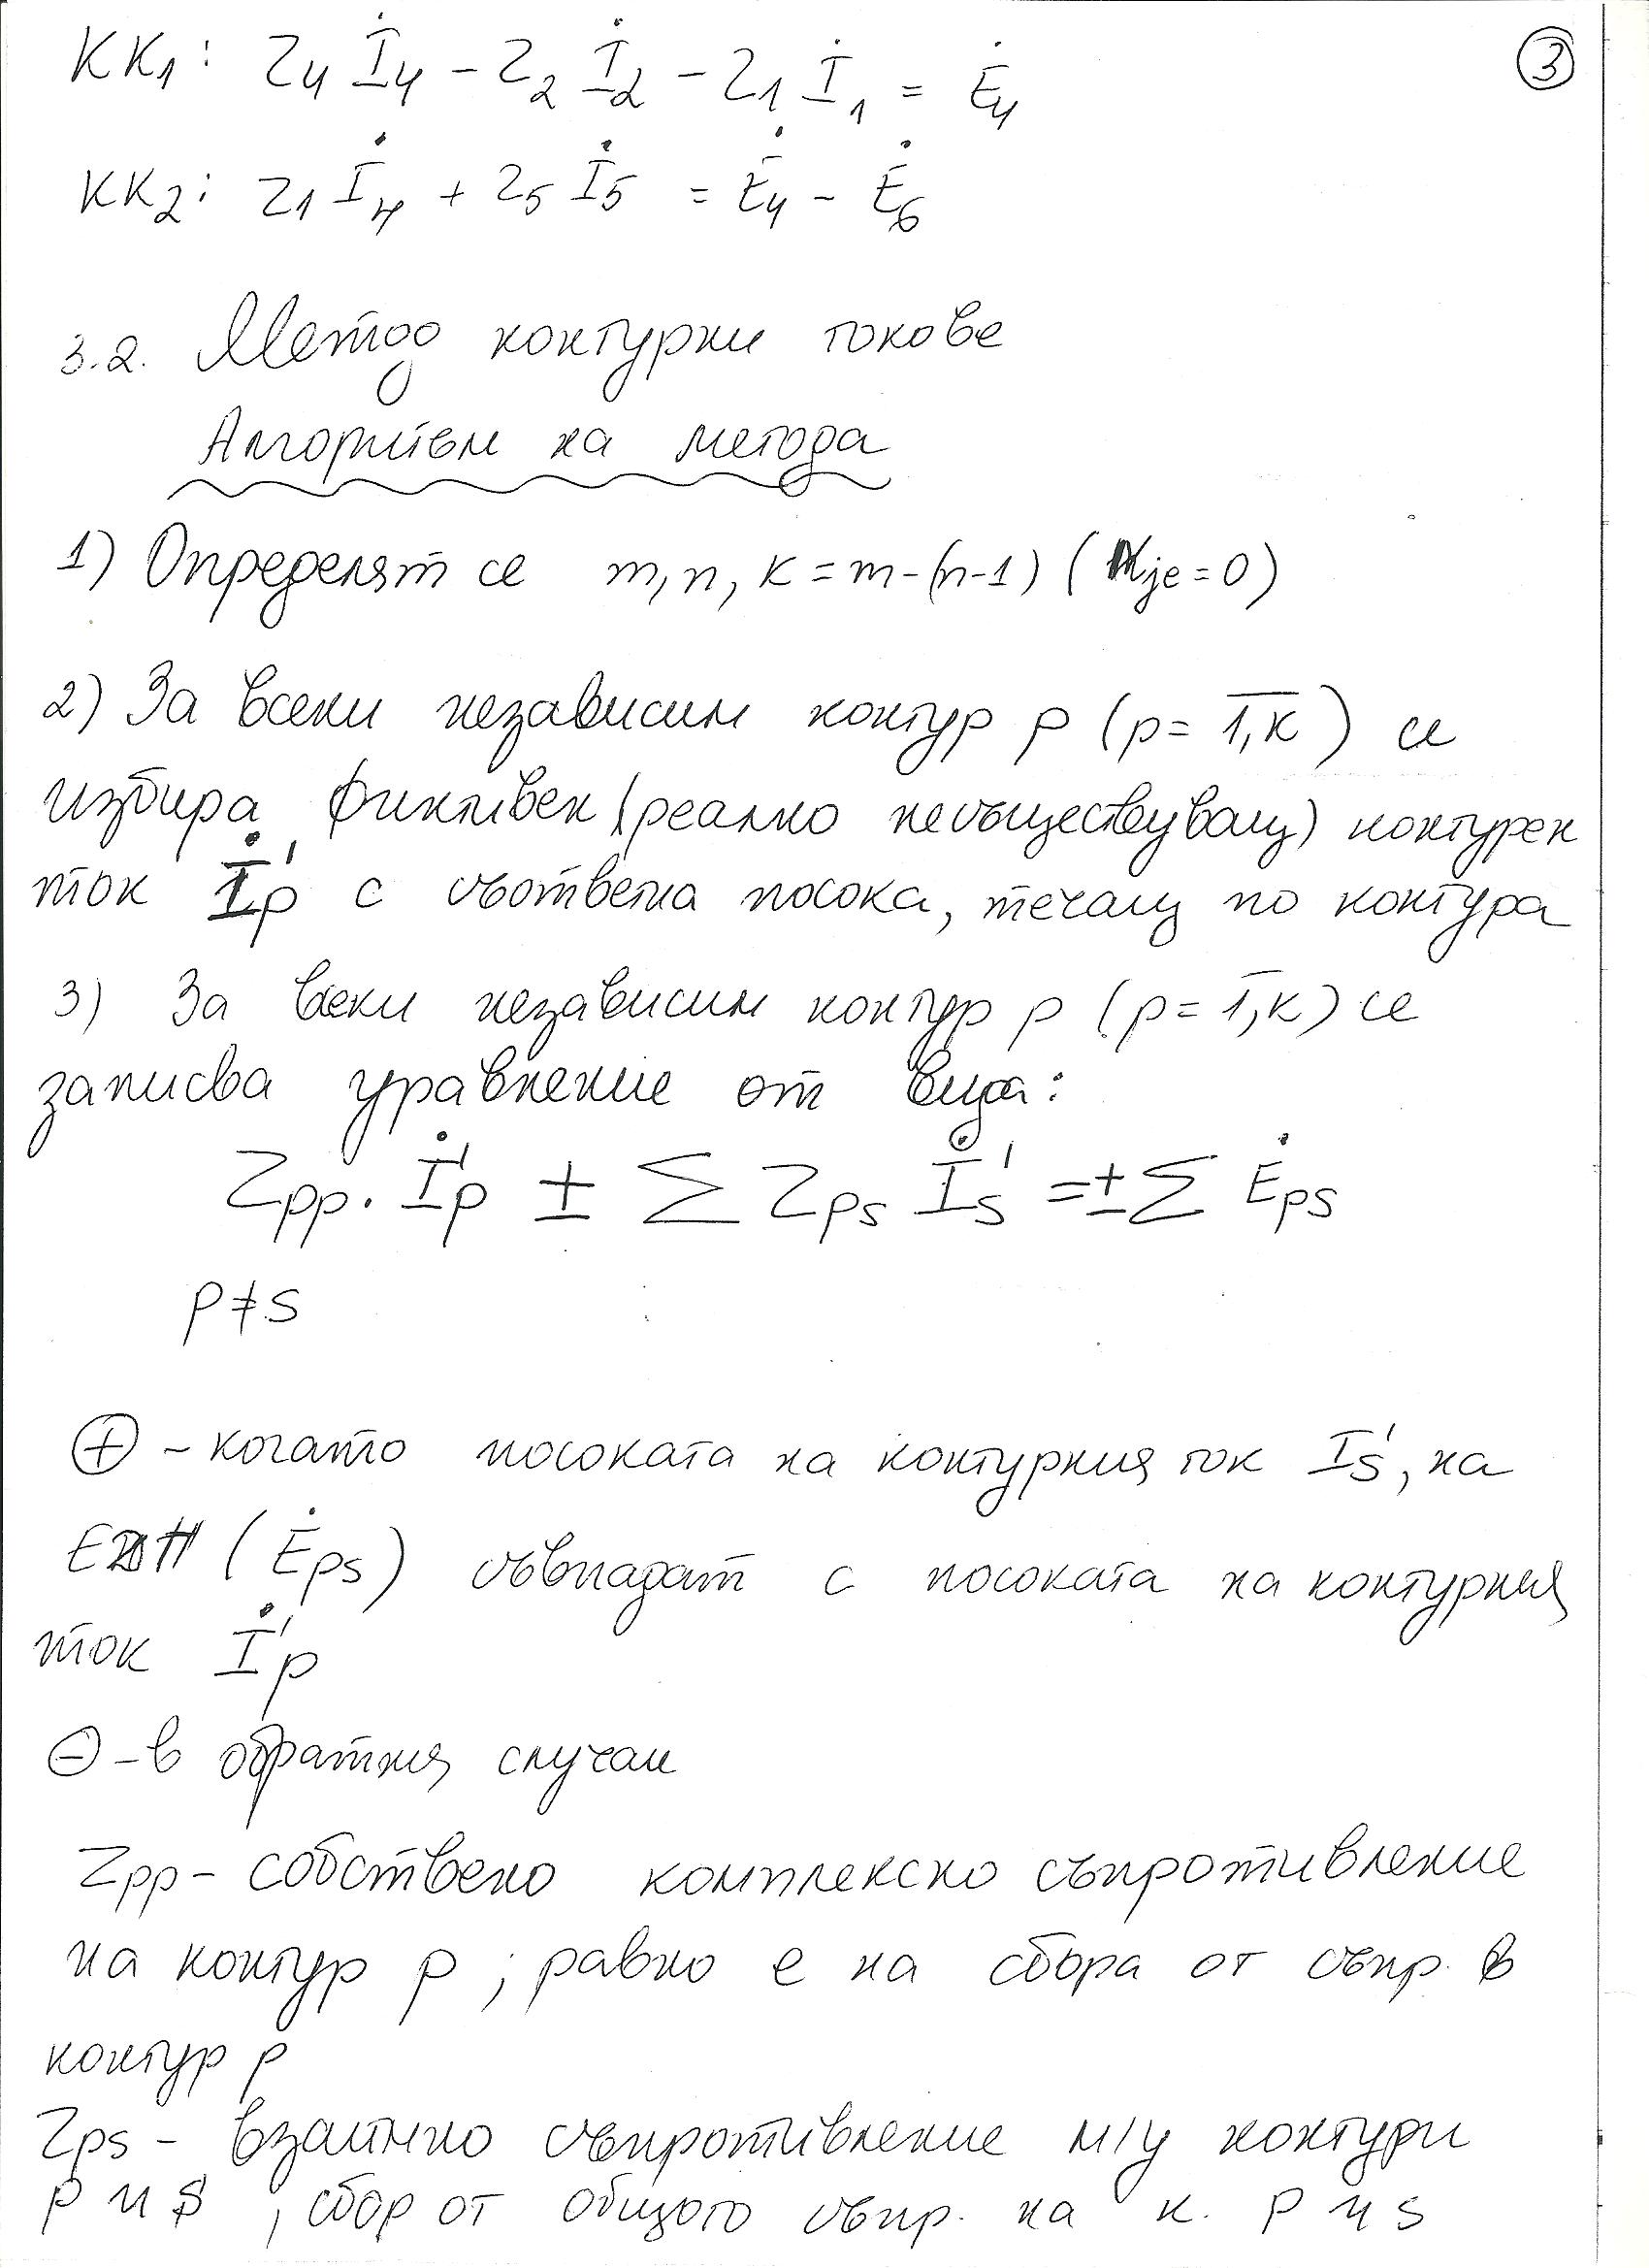 КК₁: Z₄ İ₄ - Z₂ İ₂ - Z₁ İ₁ = Ė₄
③
КК₂: Z₁ İ₄ + Z₅ İ₅ = Ė₄ - Ė₆
3.2. Метод контурни токове
Алгоритъм на метода
1) Определят се m, n, к = m-(n-1) ( je = 0)
2) За всеки независим контур p (p = 1,к) се
избира фиктивен (реално несъществуващ) контурен
ток İ'p с съответна посока, течащ по контура
3) За всеки независим контур p (p = 1,к) се
записва уравнение от вида:
Zpp . İ'p ± Σ Zps İ's = ± Σ Ėps
p ≠ s
⊕ - когато посоката на контурния ток I's, на
ЕДН (Ėps) съвпадат с посоката на контурния
ток İ'p
⊖ - в обратния случаи
Zpp - собствено комплексно съпротивление
на контур p ; равно е на сбора от съпр. в
контур p
Zps - взаимно съпротивление м/у контури
p и s , сбор от общото съпр. на к. p и s